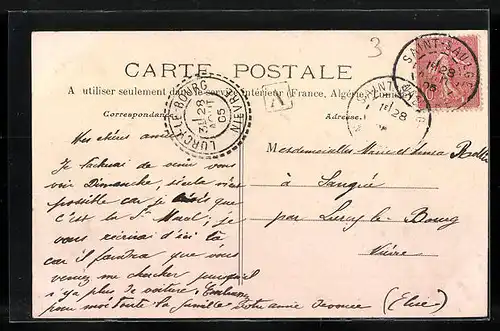 3
CARTE POSTALE
A utiliser seulement dans le service intérieur (France, Algérie,
Correspondance
Adresse
SAINT-SAULGE
28
05
SAINT-SAULGE
28
LURCY-LE-BOURG NIEVRE
28
AOUT
05
A
Mes chères amies
Je tacherai de venir vous
voir Dimanche, si cela m'est
possible car je crois que
c'est la St je
vous écrirai d'ici là
car il faudra que vous
veniez me chercher puisqu'il
n'y a plus de voiture,
pour moi toute la famille Votre amie dévouée (Elise)
Mesdemoiselles Marie et
à
par Lurcy le Bourg
Nièvre